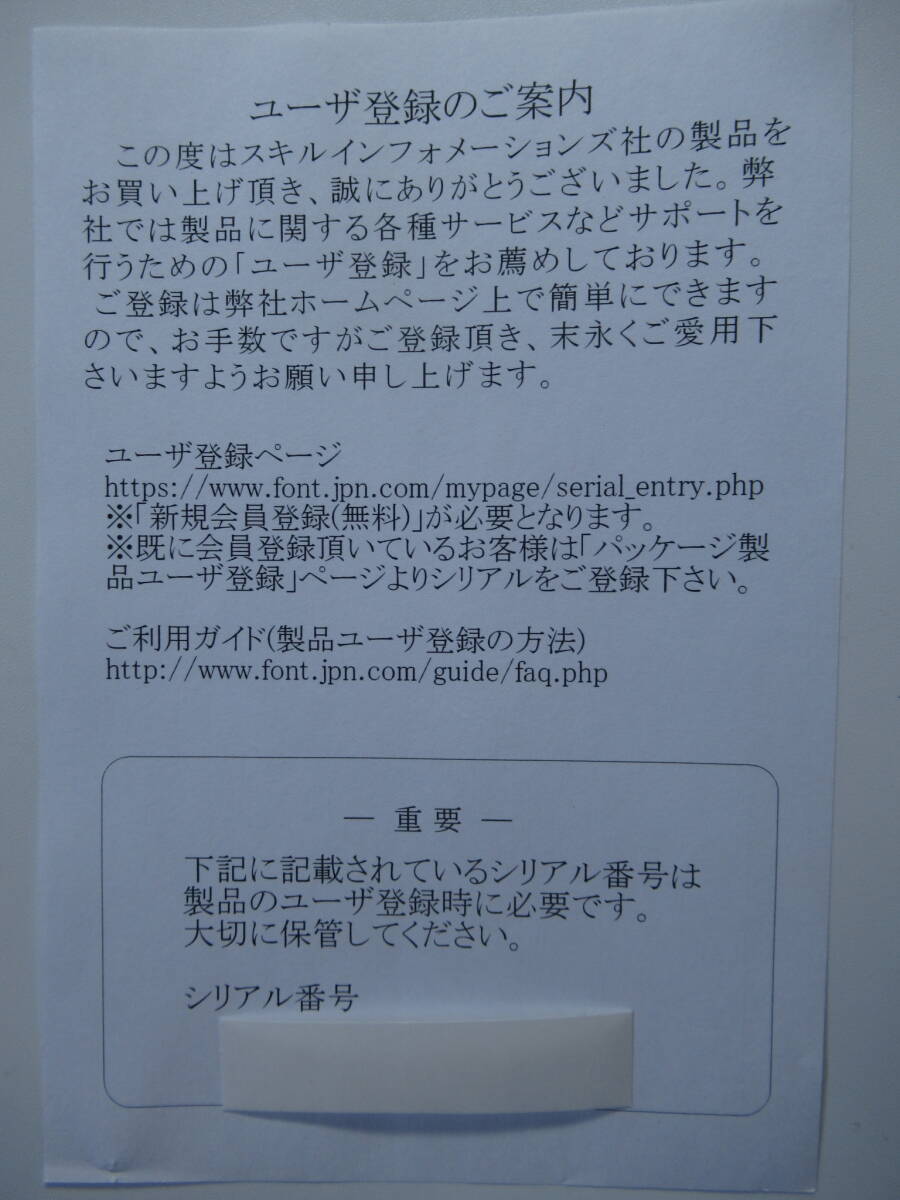 ユーザ登録のご案内
この度はスキルインフォメーションズ社の製品を
お買い上げ頂き、誠にありがとうございました。弊
社では製品に関する各種サービスなどサポートを
行うための「ユーザ登録」をお薦めしております。
ご登録は弊社ホームページ上で簡単にできます
ので、お手数ですがご登録頂き、末永くご愛用下
さいますようお願い申し上げます。
ユーザ登録ページ
https://www.font.jpn.com/mypage/serial_entry.php
※「新規会員登録(無料)」が必要となります。
※既に会員登録頂いているお客様は「パッケージ製
品ユーザ登録」ページよりシリアルをご登録下さい。
ご利用ガイド(製品ユーザ登録の方法)
http://www.font.jpn.com/guide/faq.php
― 重要 ―
下記に記載されているシリアル番号は
製品のユーザ登録時に必要です。
大切に保管してください。
シリアル番号